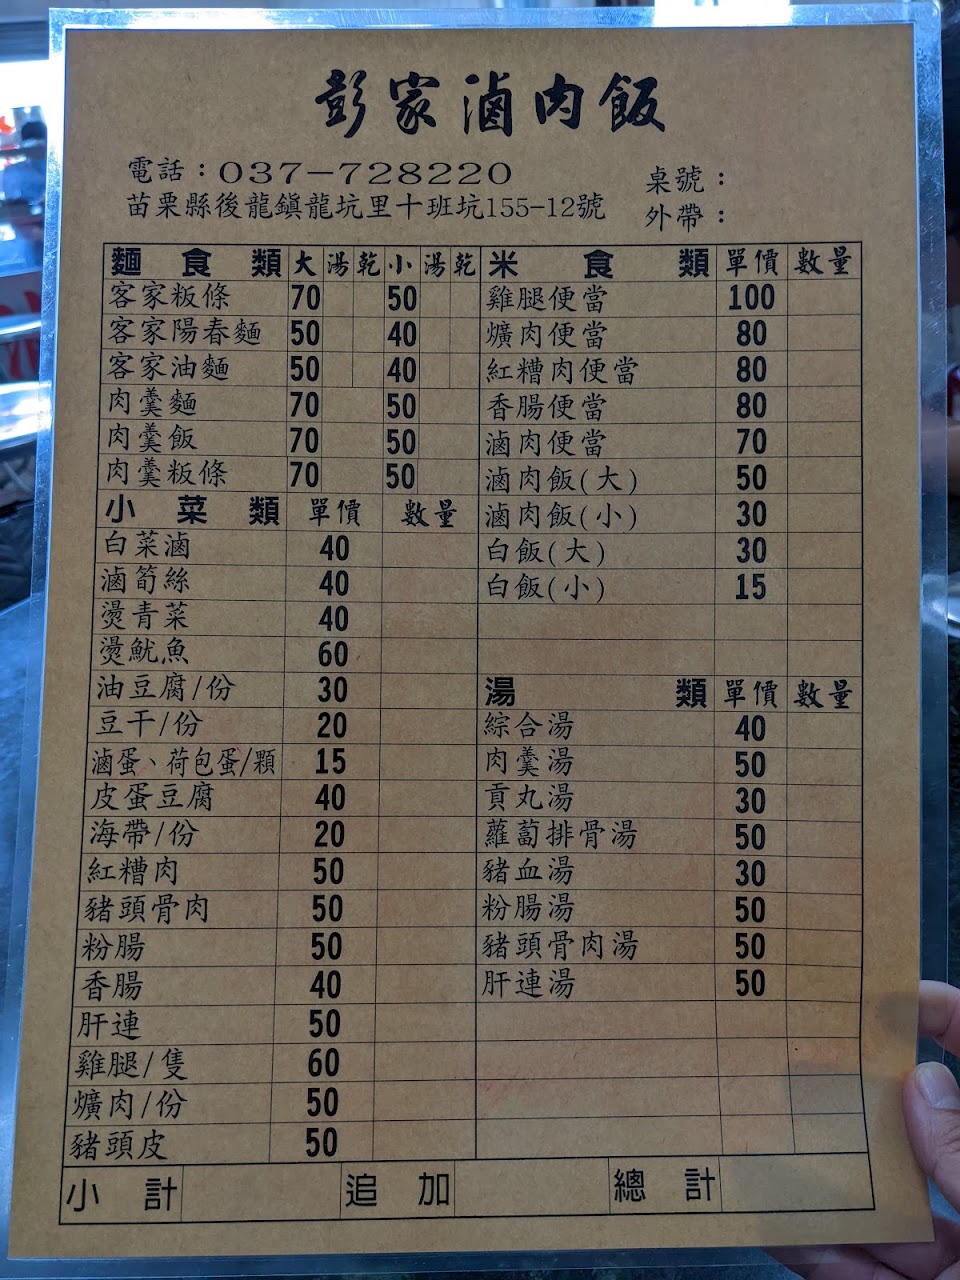 彭家滷肉飯
電話：037－728220
桌號：
苗栗縣後龍鎮龍坑里十班坑155-12號
外帶：
麵食類 大 湯 乾 小 湯 乾
客家粄條 70 50
客家陽春麵 50 40
客家油麵 50 40
肉羹麵 70 50
肉羹飯 70 50
肉羹粄條 70 50
小菜類 單價 數量
白菜滷 40
滷筍絲 40
燙青菜 40
燙魷魚 60
油豆腐/份 30
豆干/份 20
滷蛋、荷包蛋/顆 15
皮蛋豆腐 40
海帶/份 20
紅糟肉 50
豬頭骨肉 50
粉腸 50
香腸 40
肝連 50
雞腿/隻 60
爌肉/份 50
豬頭皮 50
米食類 單價 數量
雞腿便當 100
爌肉便當 80
紅糟肉便當 80
香腸便當 80
滷肉便當 70
滷肉飯(大) 50
滷肉飯(小) 30
白飯(大) 30
白飯(小) 15
湯類 單價 數量
綜合湯 40
肉羹湯 50
貢丸湯 30
蘿蔔排骨湯 50
豬血湯 30
粉腸湯 50
豬頭骨肉湯 50
肝連湯 50
小計 追加 總計